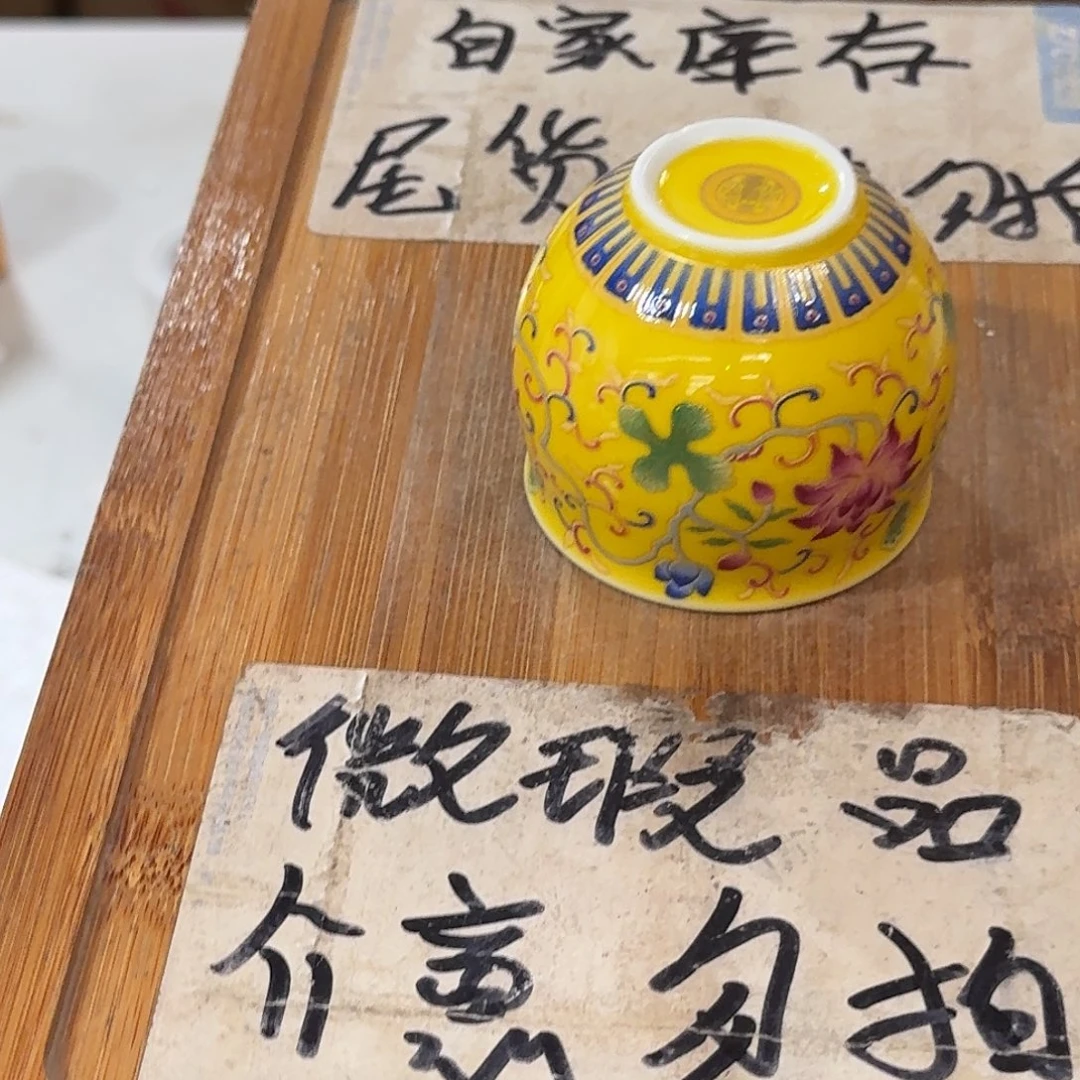 自家库存
尾货 勿拍
微瑕品
介意勿拍